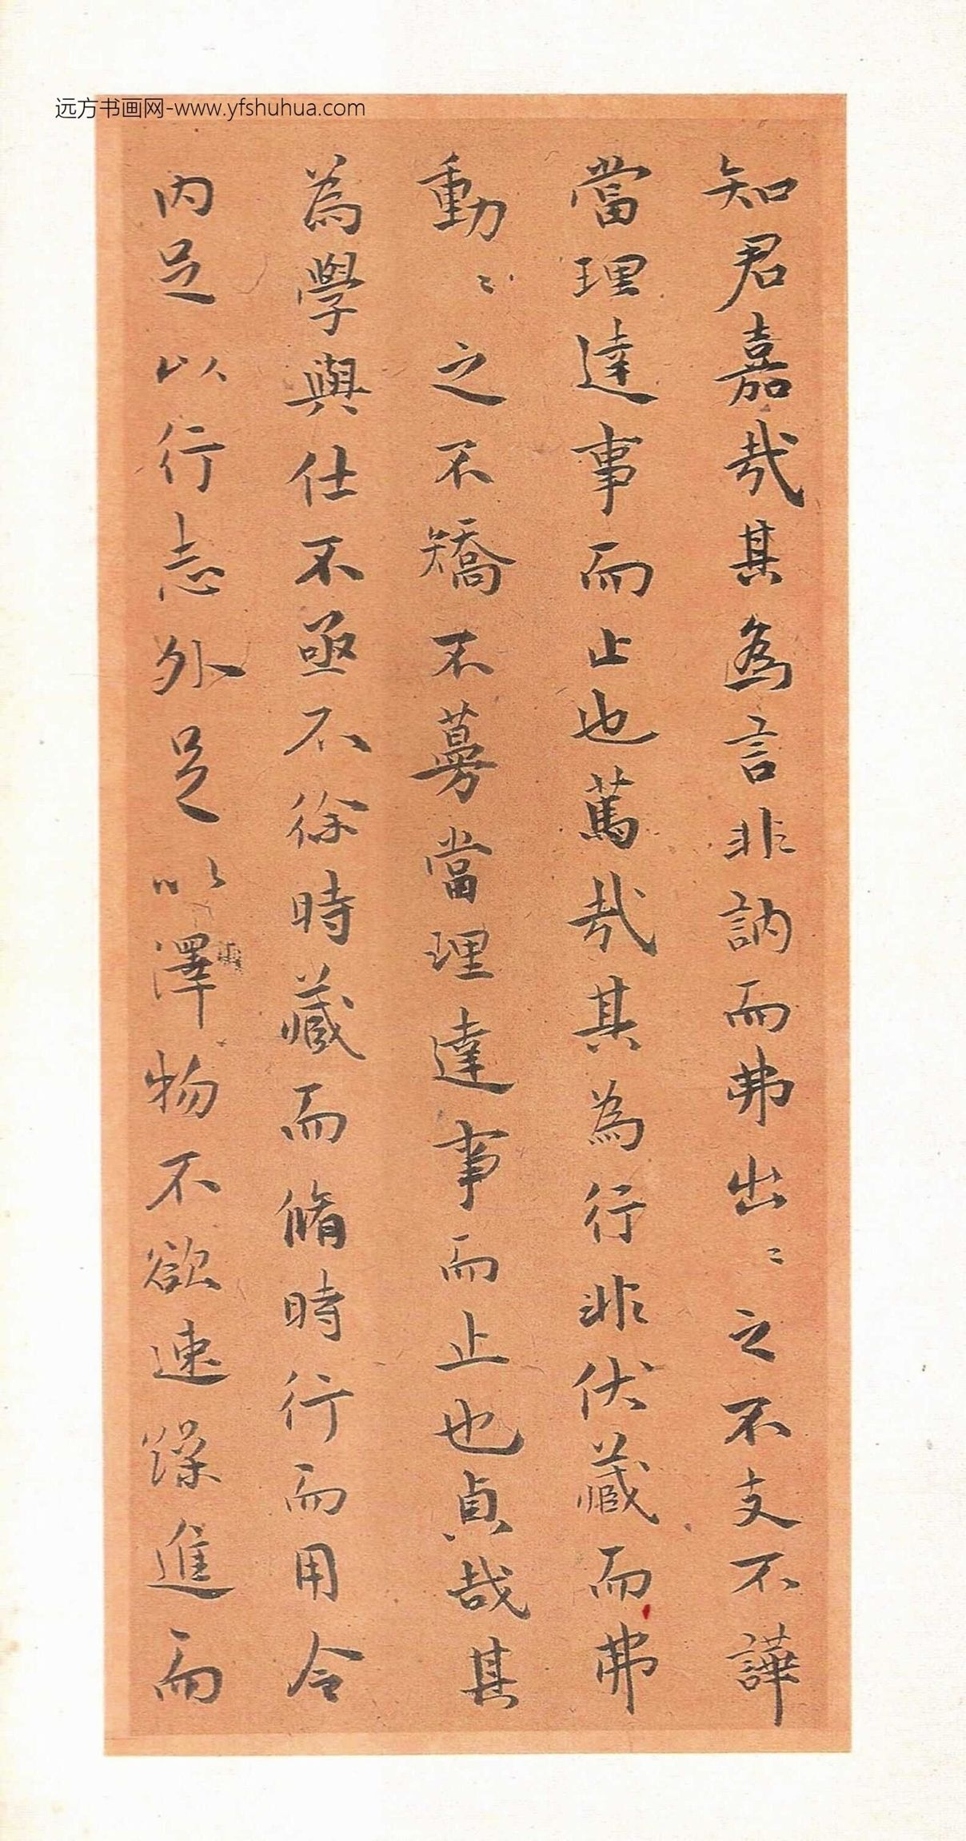 远方书画网-www.yfshuhua.com
知君嘉哉其為言非訥而弗出〻之不支不譁
當理達事而止也篤哉其為行非伏藏而弗
動〻之不矯不蒡當理達事而止也貞哉其
為學與仕不亟不徐時藏而脩時行而用令
内足以行志外足以澤物不欲速躁進而